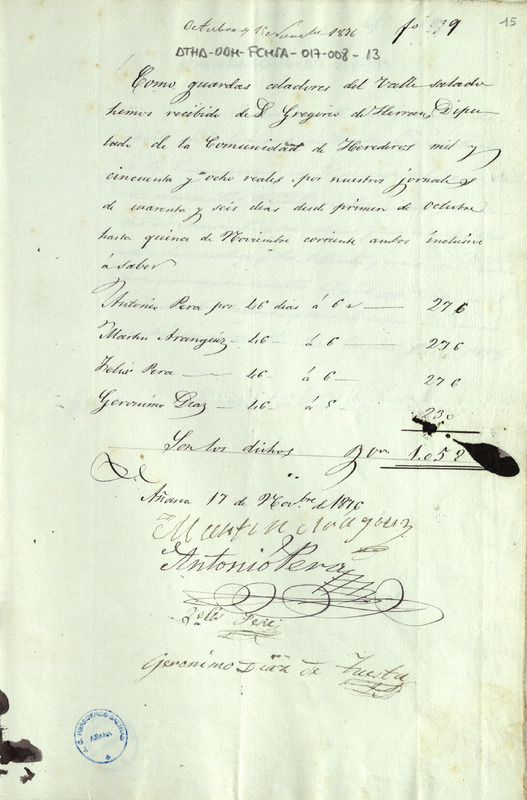 Octubre y Noviembre 1876
fo 9
15
DTHA-DAH-FCHSA-017-008-13
Como guardas celadores del Valle salado
hemos recibido de D. Gregorio de Herran, Dipu-
tado de la Comunidad de Herederos mil y
cincuenta y ocho reales por nuestros jornales
de cuarenta y seis dias desde primero de Octubre
hasta quince de Noviembre corriente ambos inclusive
á saber
Antonio Pera por 46 dias á 6 r — 276
Martin Aranguiz — 46 — á 6 — 276
Felix Pera — 46 — á 6 — 276
Geronimo Diaz — 46 — á 5 — 230
Son los dichos 1.058
Añana 17 de Novbre de 1876
Martin Aranguiz
Antonio Pera
Geronimo Diaz de Tuesta
HEREDEROS SALINAS
AÑANA